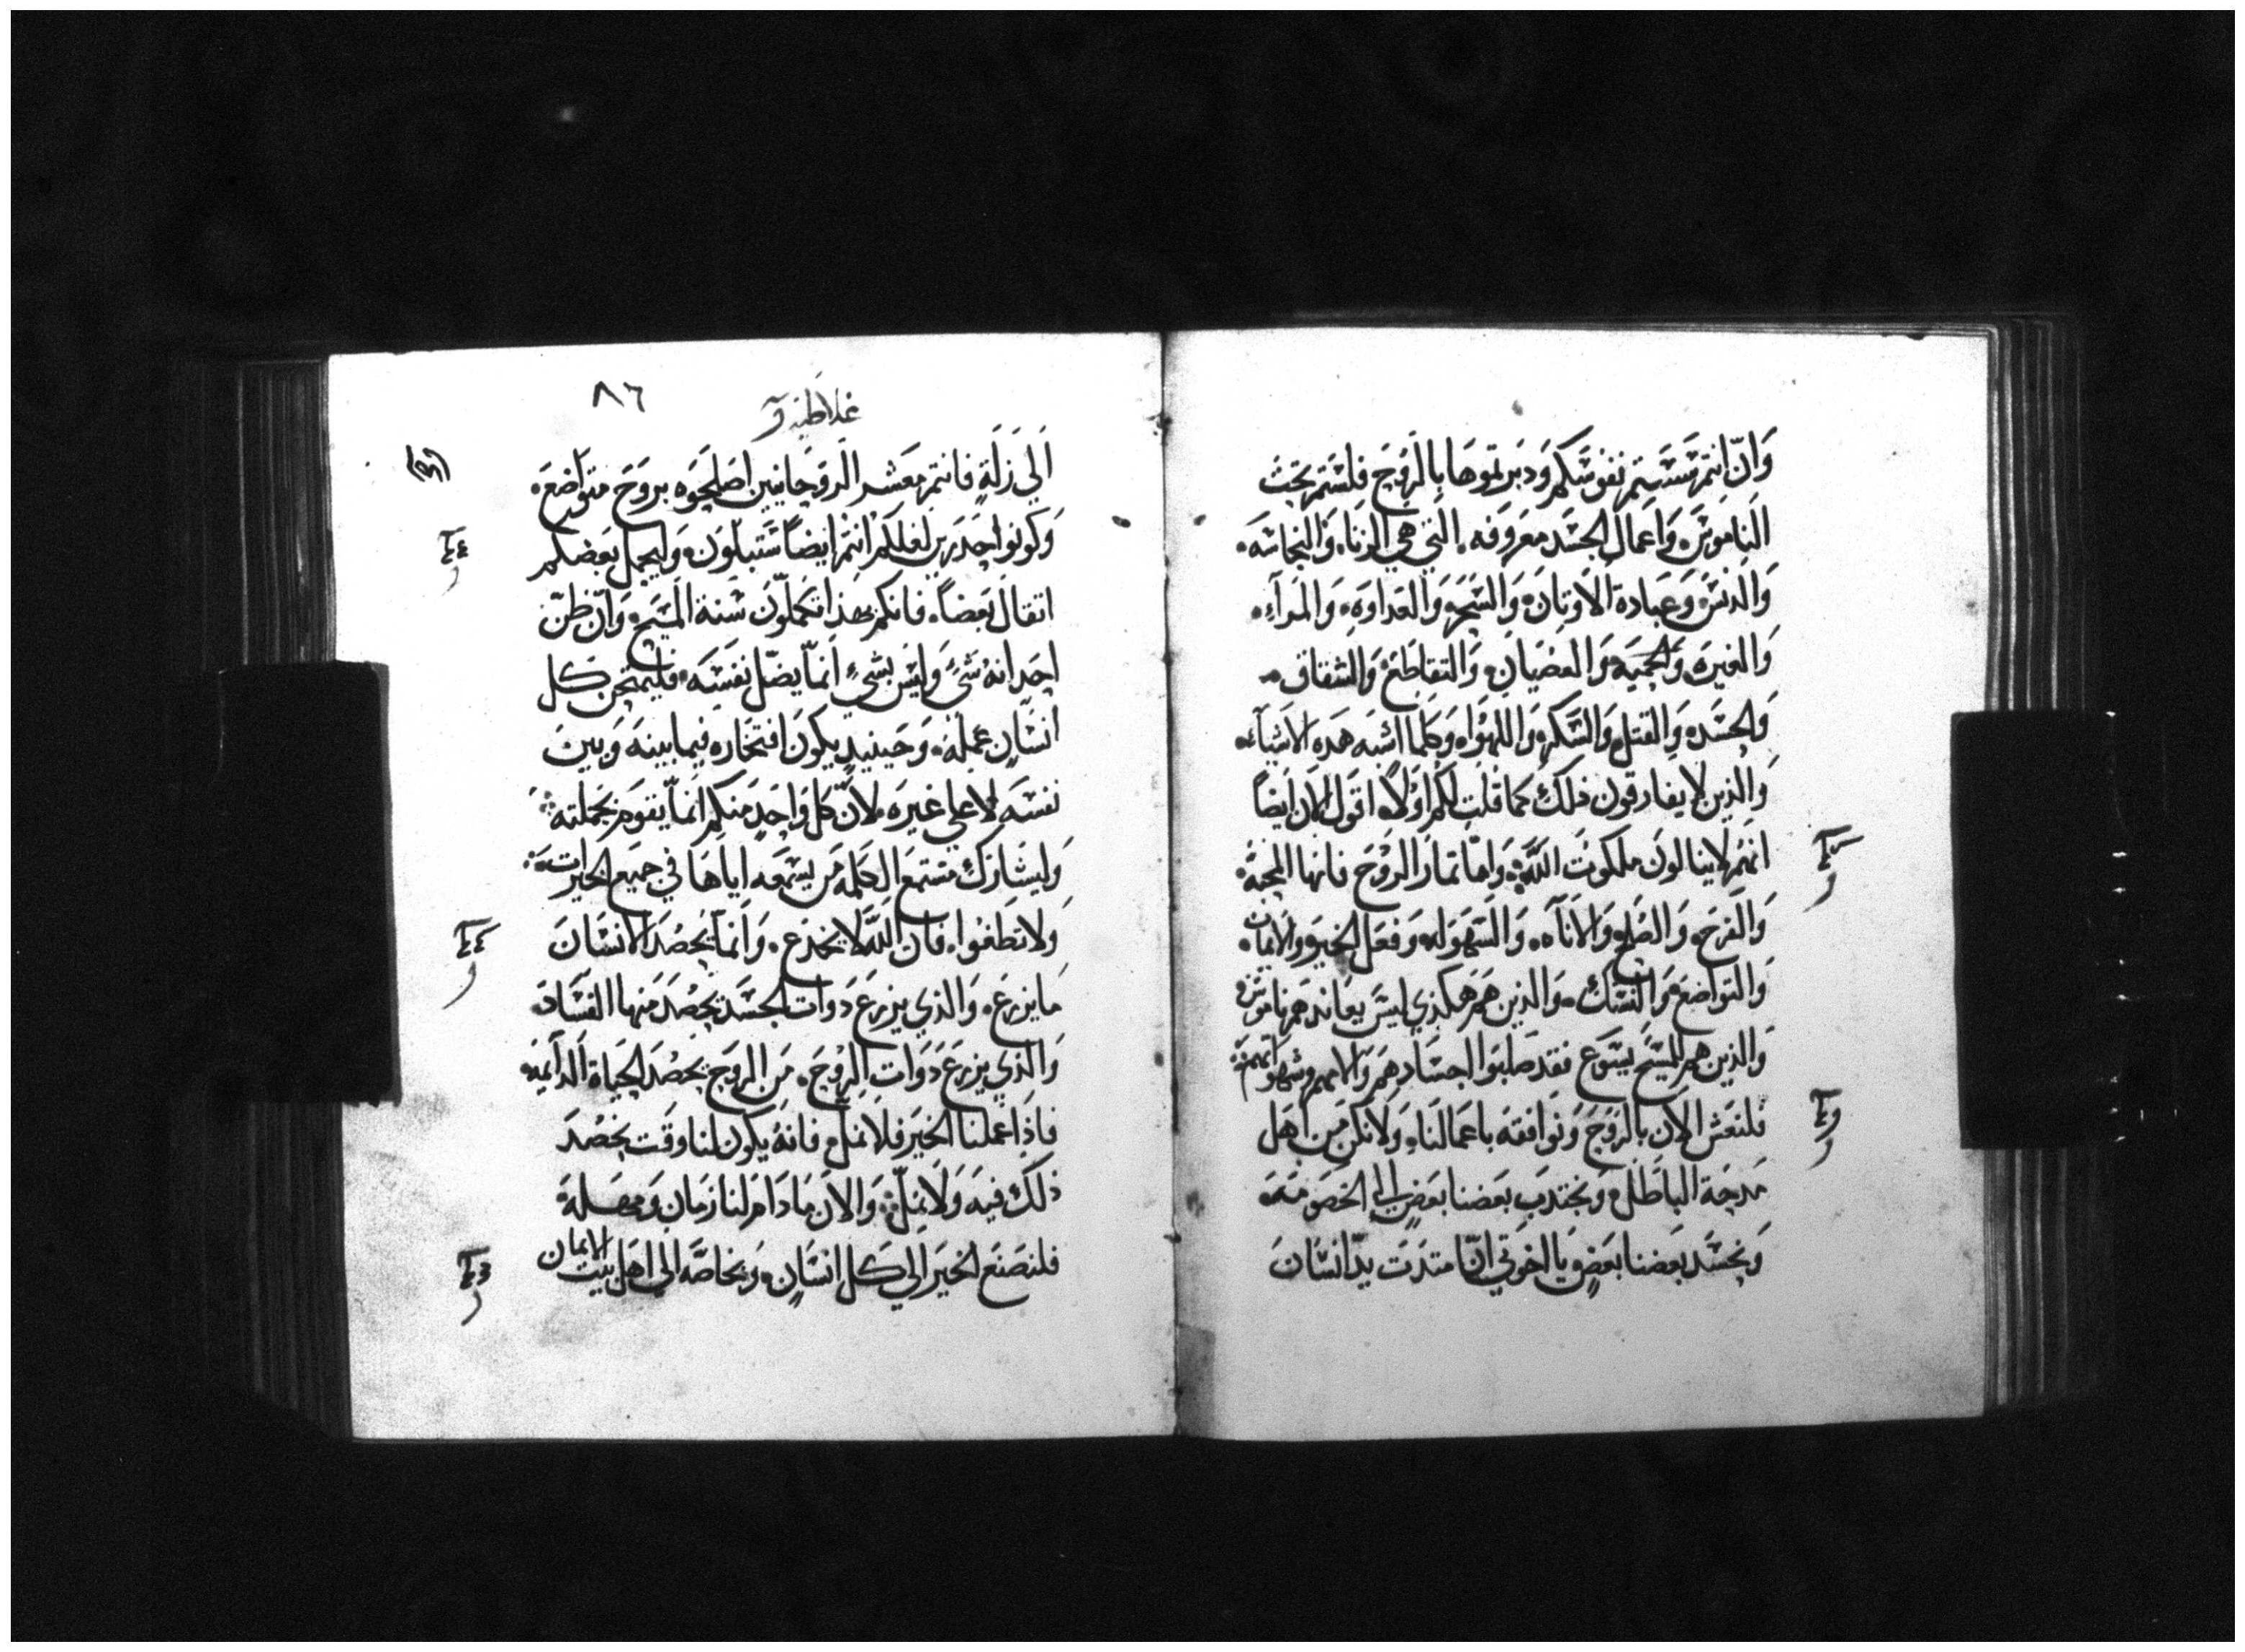 وان انتم سستم نفوسكم ودبرتموها بالروح فلستم تحت
الناموس واعمال الجسد معروفه التي هي الزنا والنجاسه
والدنس وعبادة الاوتان والسحر والعداوه والمرآء
والغيره والحميه والعصيان والتقاطع والشقاق
والحسد والقتل والسكر واللهوا وكلما اشبه هده الاشيآء
والذين لا يفارقون ذلك كما قلت لكم اولا اقول الان ايضا
انهم لا ينالون ملكوت الله واما تمار الروح فانها المحبة
والفرح والصلح والاناه والسهوله وفعل الخير والايمان
والتواضع والنسك والذين هم هكذي ليس يعاندهم ناموس
والذين هم للمسيح يسوع فقد صلبوا اجسادهم والامهم وشهواتهم
فلنعش الان بالروح ونوافقه باعمالنا ولا نكن من اهل
مدحة الباطل ويجتدب بعضنا بعض الي الخصومه
ويحسد بعضنا بعض يا اخوتي ان امتدت يد انسان
غلاطيه
٨٦
الي زلة فانتم معشر الروحانيين اصلحوه بروح متواضع
وكونوا حدرين لعلكم انتم ايضا ستبتلون وليحمل بعضكم
اتقال بعضا فانكم بهذا تكملون سنة المسيح وان ظن
احد انه شي وليس بشي انما يضل نفسه فليمتحن كل
انسان عمله وحينيد يكون افتخاره فيما بينه وبين
نفسه لا علي غيره لان كل واحد منكم انما يقوم بحملته
وليشارك مستمع الكلمه من يسمعه اياها في جميع الخيرات
ولا تطغوا فان الله لا يخدع وانما يحصد الانسان
ما يزرع والذي يزرع دوات الجسد يحصد منها الفساد
والذي يزرع دوات الروح من الروح يحصد الحياة الدآيمه
فاذا عملنا الخير فلا نمل فانه يكون لنا وقت نحصد
ذلك فيه ولا نمل والان ما دام لنا زمان ومهله
فلنصنع الخير الي كل انسان وبخاصه الي اهل بيت الايمان